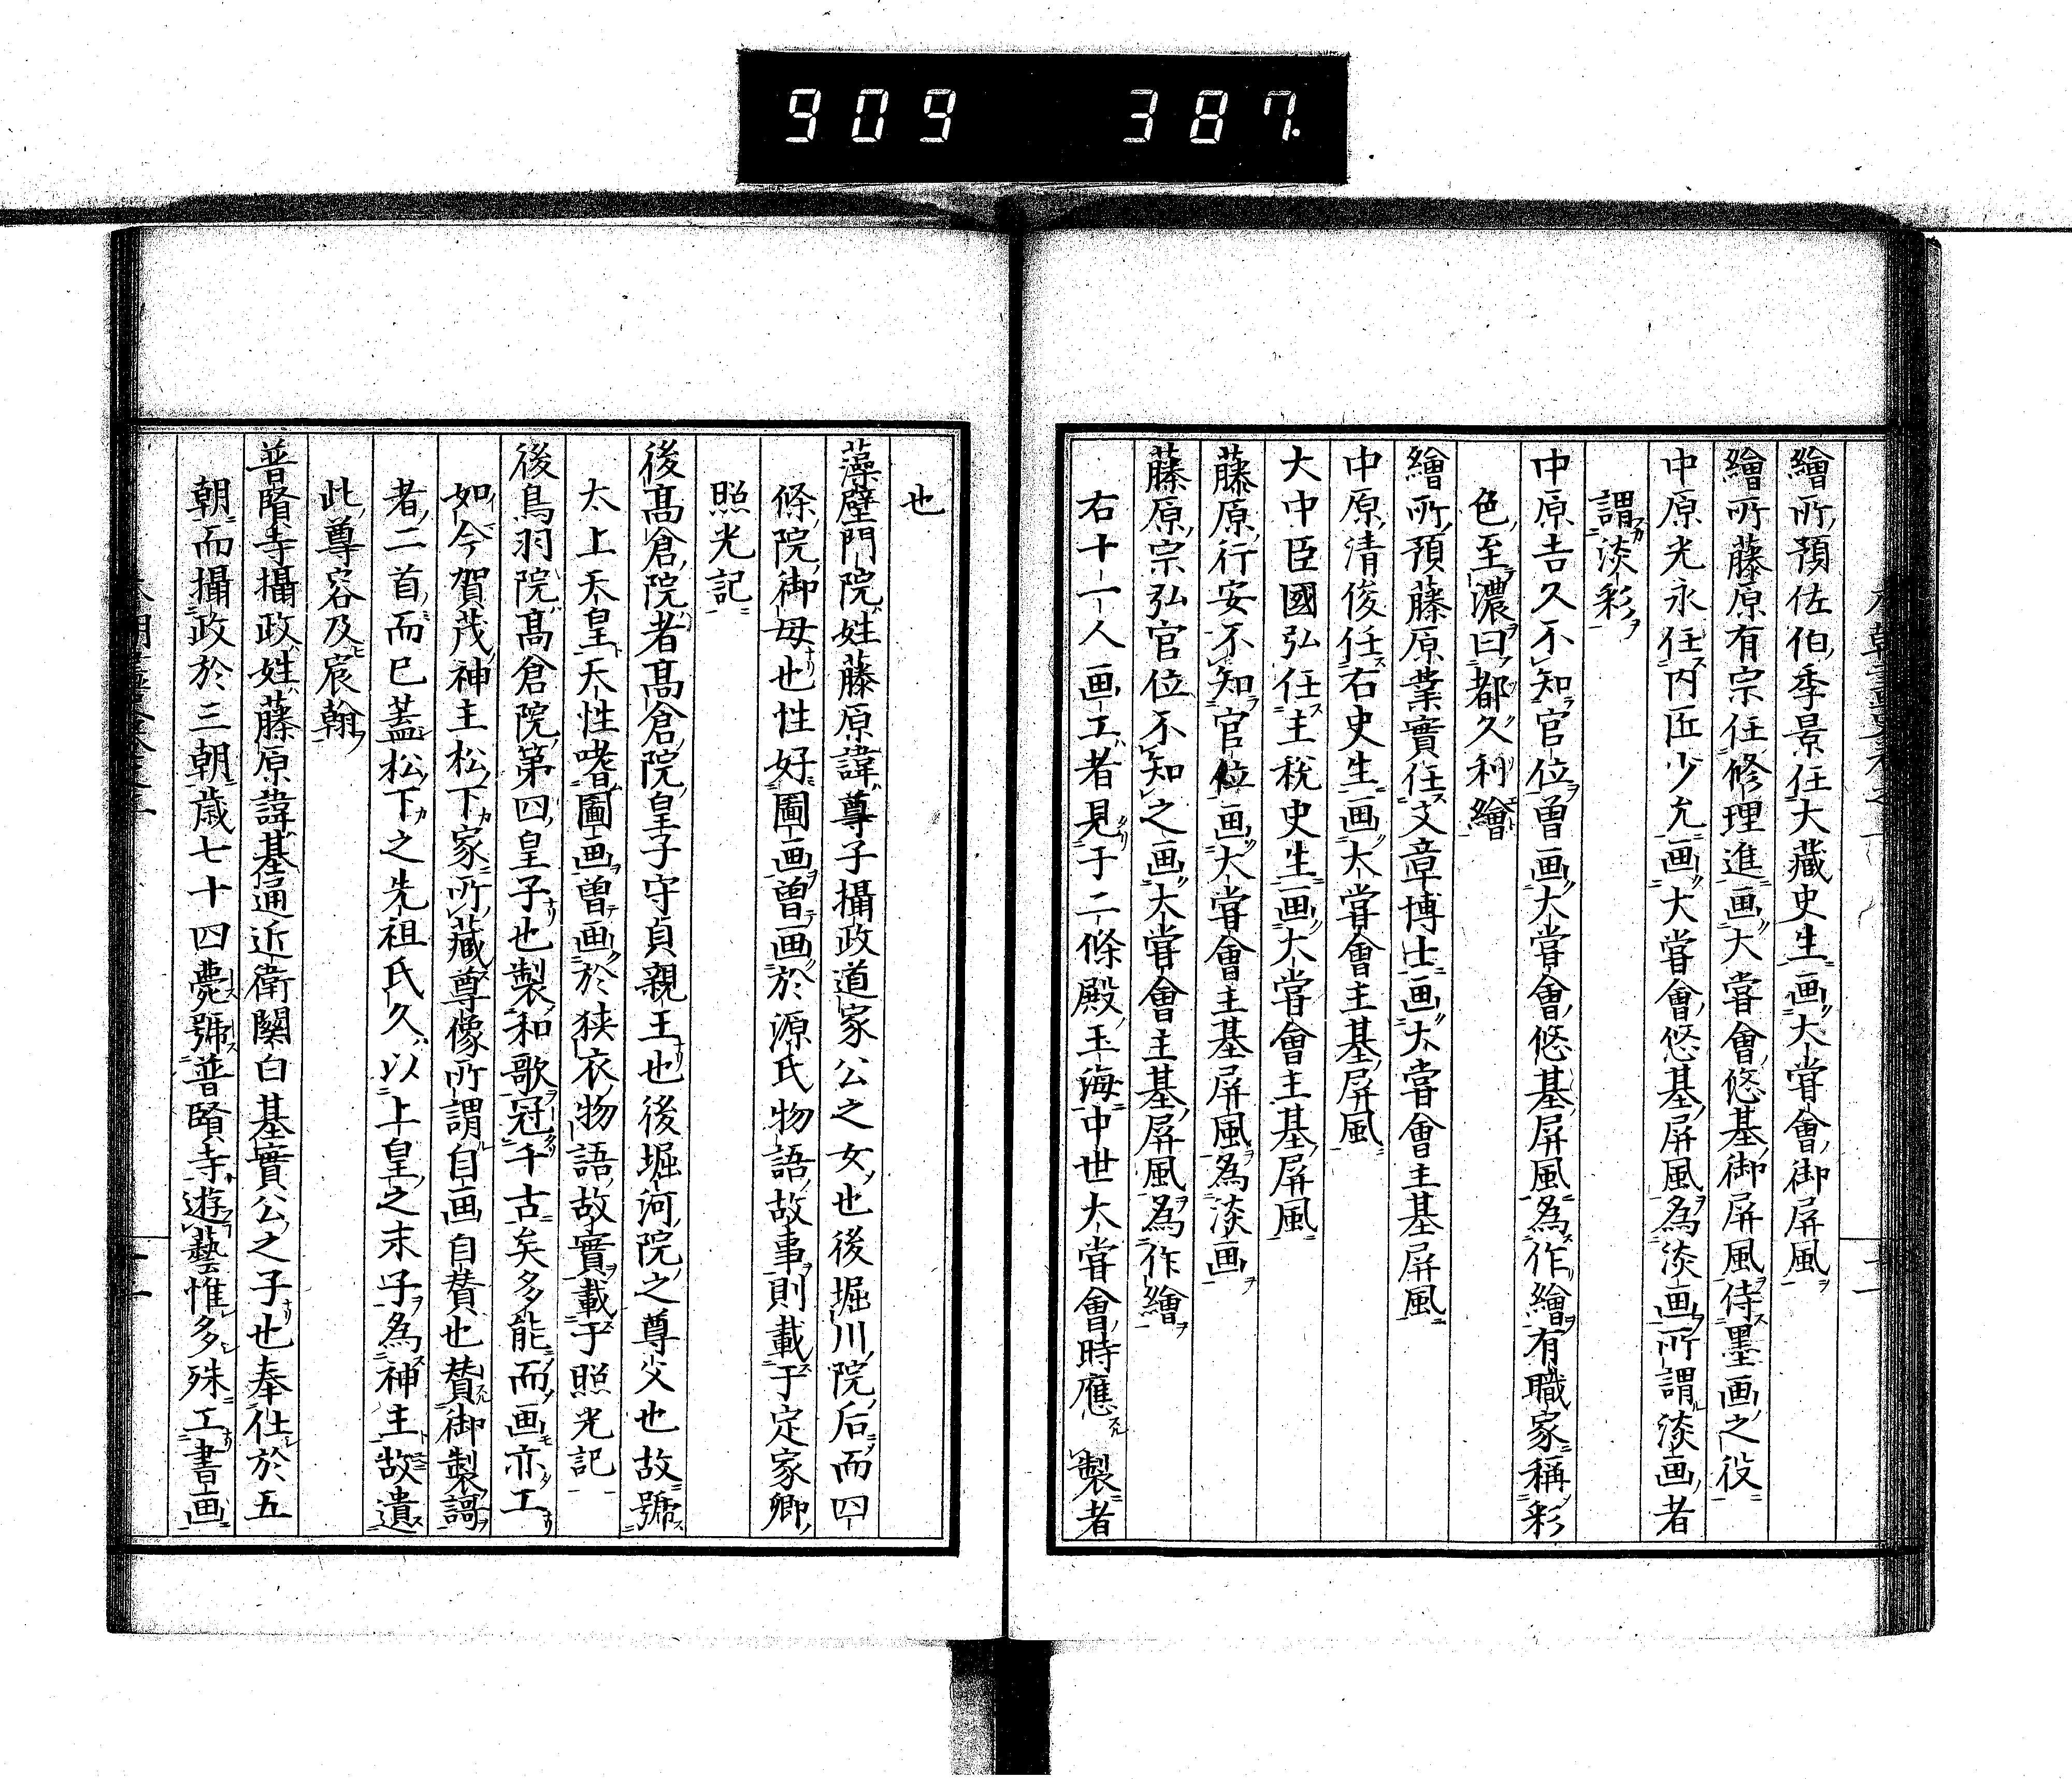 909 387.
繪所預佐伯季景任大藏史生画大嘗會御屏風
繪所藤原有宗任修理進画大嘗會悠基御屏風侍墨画之役
中原光永任内匠少允画大嘗會悠基屏風為淡画所謂淡画者
謂淡彩
中原吉久不知官位曽画大嘗會悠基屏風為作繪有職家稱彩
色至濃曰都久利繪
繪所預藤原業實任文章博士画大嘗會主基屏風
中原清俊任右史生画大嘗會主基屏風
大中臣國弘任主税史生画大嘗會主基屏風
藤原行安不知官位画大嘗會主基屏風為淡画
藤原宗弘官位不知之画大嘗會主基屏風為作繪
右十一人画工者見于二條殿玉海中世大嘗會時應製者
也
藻壁門院姓藤原諱尊子攝政道家公之女也後堀川院后而四
條院御母也性好圖画曽画於源氏物語故事則載于定家卿
照光記
後髙倉院者髙倉院皇子守貞親王也後堀河院之尊父也故號
太上天皇天性嗜圖画曽画於狭衣物語故實載于照光記
後鳥羽院髙倉院第四皇子也製和歌冠千古矣多能而画亦工
如今賀茂神主松下家所藏尊像所謂自画自賛也賛御製謌
者二首而已蓋松下之先祖氏久以上皇之末子為神主故遺
此尊容及宸翰
普賢寺攝政姓藤原諱基通近衛関白基實公之子也奉仕於五
朝而攝政於三朝歳七十四薨號普賢寺遊藝惟多殊工書画